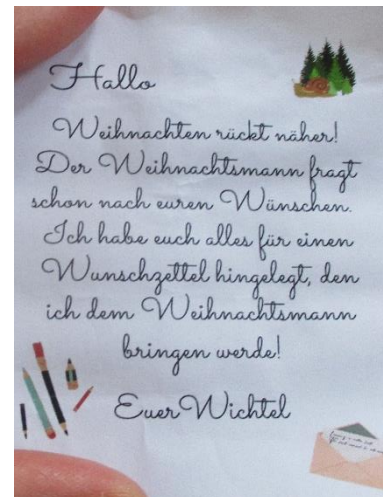 Hallo
Weihnachten rückt näher!
Der Weihnachtsmann fragt
schon nach euren Wünschen.
Ich habe euch alles für einen
Wunschzettel hingelegt, den
ich dem Weihnachtsmann
bringen werde!
Euer Wichtel